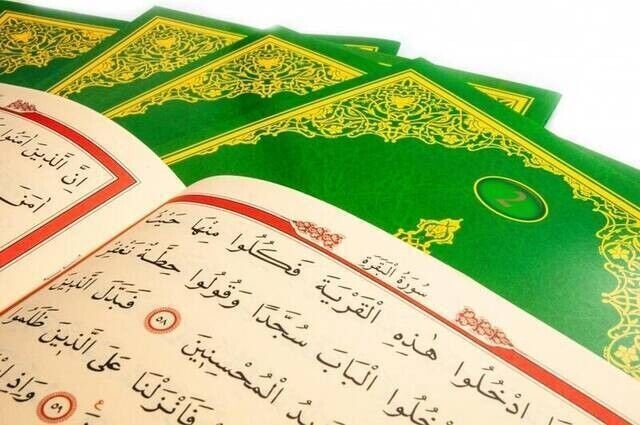 2
سُورَةُ الْبَقَرَةِ
ادْخُلُوا هٰذِهِ الْقَرْيَةَ فَكُلُوا مِنْهَا
الْبَابَ سُجَّدًا وَقُولُوا حِطَّةٌ نَغْفِرْ
الْمُحْسِنِينَ ٥٨ فَبَدَّلَ الَّذِينَ
فَاَنْزَلْنَا عَلَى الَّذِينَ ظَلَمُوا
٥٩ وَاِذِ
اِنَّ الَّذِينَ اٰمَنُوا
اٰمَنَ